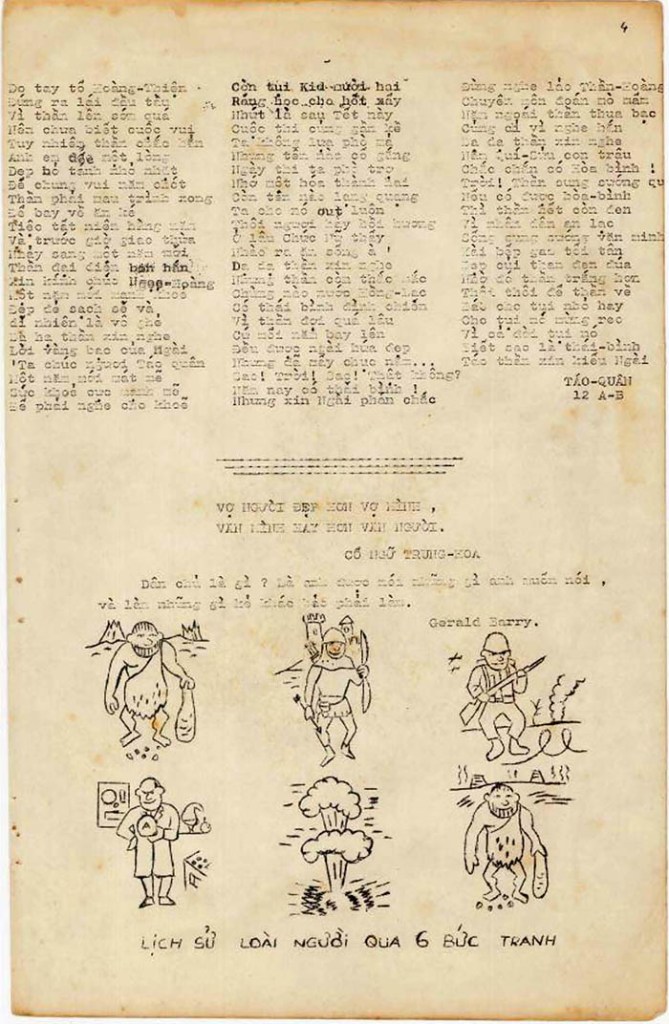 4
Do tay tổ Hoàng-Thiên
Đứng ra lái đầu tàu
Vì thần lên sớm quá
Nên chưa biết cuộc vui
Tuy nhiên thần chắc hẳn
Anh em một lòng
Dẹp bỏ tánh nhỏ nhặt
Để chung vui năm chót
Thần phải mau trình xong
Để bay về ăn ké
Tiệc tất niên hằng năm
Và trước giờ giao thừa
Nhảy sang một năm mới
Thần đại diện bàn hân
Xin kính chúc Ngọc-Hoàng
Một năm mới mạnh khoẻ
Bếp đế sạch sẽ và
dĩ nhiên là vô ghẻ
Dạ hạ thần xin nghe
Lời vàng bạc của Ngài
'Ta chúc ngươi Táo quân
Một năm mới mát mẻ
Sức khoẻ cực mạnh mẽ
Để phải nghe cho khoẻ
Còn tụi Kid mười hai
Ráng học cho hốt xáy
Nhứt là sau Tết này
Cuộc thi cũng gần kề
Ta không lựa phò mã
Nhưng tên nào cố gắng
Ngày thi ta phò trợ
Nhớ một hoa thành hai
Còn tên nào lang quang
Ta cho nó out luôn
Thôi ngươi hãy hồi hương
Ở lâu Chức Nữ thấy
Nhào ra ăn sống à !
Dạ dạ thần xin nghe
Nhưng thần còn thắc mắc
Chẳng nào nước Hồng-Lạc
Có thái bình đình chiến
Vì thần đợi quá lâu
Cứ mỗi năm bay lên
Đều được ngài hứa đẹp
Nhưng đã mấy chục năm...
Sao! Trời! Sao! Thật không?
Năm nay có thái bình !
Nhưng xin Ngài phán chắc
Đừng nghe lão Thần-Hoàng
Chuyên môn đoán mò mẫm
Năm ngoái thần thua bạc
Cũng chỉ vì nghe hắn
Dạ dạ thần xin nghe
Năm Quí-Sửu con trâu
Chắc chắn có Hòa bình !
Trời! Thần sung sướng quá
Nếu có được hòa-bình
Thì thần hết còn đen
Vì nhân dân an lạc
Sống sung sướng văn minh
Xài bếp gas tối tân
Dẹp củi than đen đúa
Nhờ đó thần trắng hơn
Thôi thôi để thần về
Bắt cho tụi nhỏ hay
Cho tụi nó mừng reo
Vì cả đời tụi nó
Biết sao là thái-bình
Táo thần xin kiếu Ngài
TÁO-QUÂN
12 A-B
VỢ NGƯỜI ĐẸP HƠN VỢ MÌNH ,
VĂN MÌNH HAY HƠN VĂN NGƯỜI.
CỔ NGỮ TRUNG-HOA
Dân chủ là gì ? Là anh được nói những gì anh muốn nói ,
và làm những gì kẻ khác bắt phải làm.
Gerald Barry.
LỊCH SỬ LOÀI NGƯỜI QUA 6 BỨC TRANH